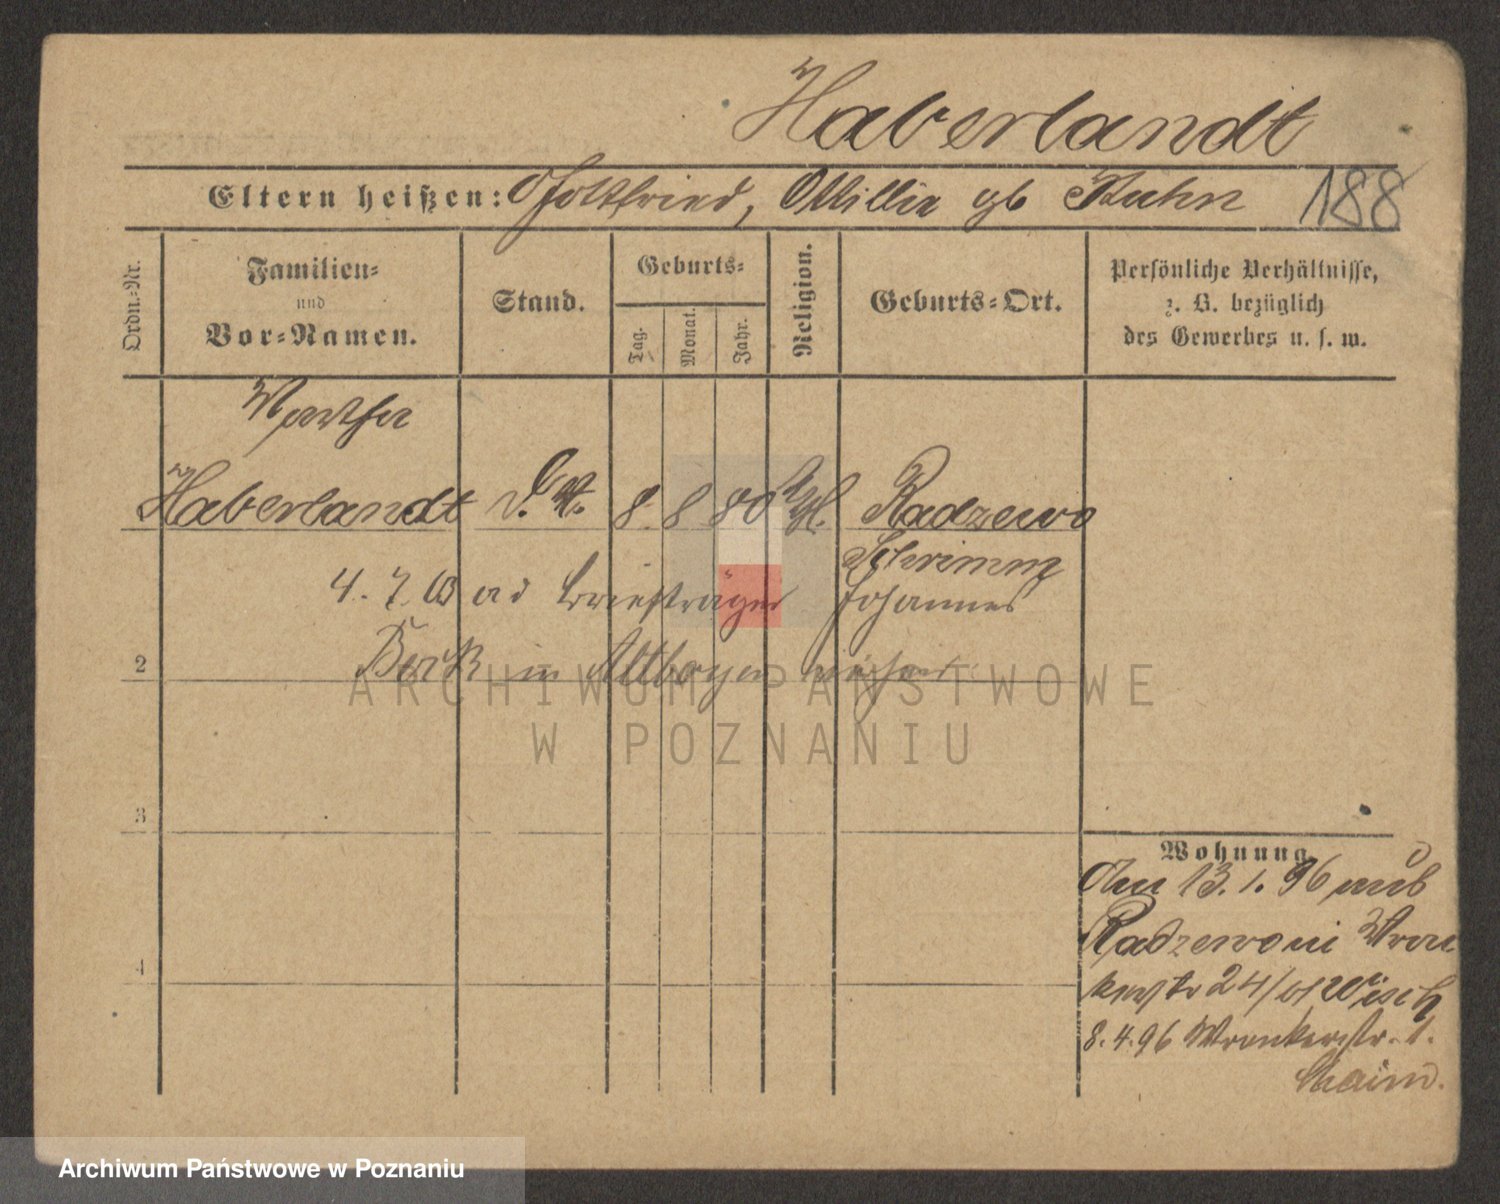 Haberlandt
Eltern heißen: Gottfried, Ottillie gb Kuhn 188
Ordn.-Nr.
Familien-
und
Vor-Namen.
Stand.
Geburts-
Tag.
Monat.
Jahr.
Religion.
Geburts-Ort.
Persönliche Verhältnisse,
z. B. bezüglich
des Gewerbes u. s. w.
Martha
Haberlandt 8. 8 80 Radzewo
Schrimm
4. 7. ad Briefträger Johannes
2 in
3
4
Wohnung
13. 1. 96 aus
Radzewo
24/
8. 4. 96 Wronkerstr. 1.
ARCHIWUM PAŃSTWOWE
W POZNANIU
Archiwum Państwowe w Poznaniu